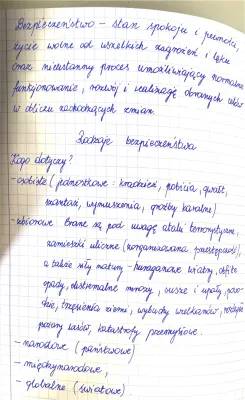 Bezpieczeństwo - stan spokoju i pewności,
życie wolne od wszelkich zagrożeń i lęku
oraz nieustanny proces umożliwiający normalne
funkcjonowanie, rozwój i realizację obranych celów
w obliczu zachodzących zmian.
Rodzaje bezpieczeństwa
Kogo dotyczy?
- osobiste (jednostkowe: kradzież, pobicia, gwałt,
szantaż, wymuszenia, groźby karalne)
- zbiorowe brane są pod uwagę ataki terrorystyczne,
zamieszki uliczne (zorganizowana przestępczość),
a także siły natury - huraganowe wiatry, obfite
opady, ekstremalne mrozy, susze i upały, powo-
dzie, trzęsienia ziemi, wybuchy wulkanów,
pożary lasów, katastrofy przemysłowe.
- narodowe (państwowe)
- międzynarodowe,
- globalne (światowe)